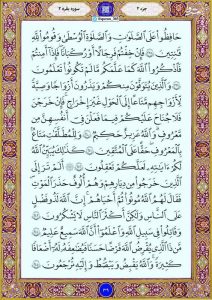 جزء ۲
سوره بقره ۲
حَافِظُوا عَلَى الصَّلَوَاتِ وَالصَّلَاةِ الْوُسْطَىٰ وَقُومُوا لِلَّهِ
قَانِتِينَ ﴿۲۳۸﴾ فَإِنْ خِفْتُمْ فَرِجَالًا أَوْ رُكْبَانًا فَإِذَا أَمِنْتُمْ
فَاذْكُرُوا اللَّهَ كَمَا عَلَّمَكُمْ مَا لَمْ تَكُونُوا تَعْلَمُونَ
﴿۲۳۹﴾ وَالَّذِينَ يُتَوَفَّوْنَ مِنْكُمْ وَيَذَرُونَ أَزْوَاجًا وَصِيَّةً
لِأَزْوَاجِهِمْ مَتَاعًا إِلَى الْحَوْلِ غَيْرَ إِخْرَاجٍ فَإِنْ خَرَجْنَ
فَلَا جُنَاحَ عَلَيْكُمْ فِي مَا فَعَلْنَ فِي أَنْفُسِهِنَّ مِنْ
مَعْرُوفٍ وَاللَّهُ عَزِيزٌ حَكِيمٌ ﴿۲۴۰﴾ وَلِلْمُطَلَّقَاتِ مَتَاعٌ
بِالْمَعْرُوفِ حَقًّا عَلَى الْمُتَّقِينَ ﴿۲۴۱﴾ كَذَٰلِكَ يُبَيِّنُ اللَّهُ
لَكُمْ آيَاتِهِ لَعَلَّكُمْ تَعْقِلُونَ ﴿۲۴۲﴾ أَلَمْ تَرَ إِلَى
الَّذِينَ خَرَجُوا مِنْ دِيَارِهِمْ وَهُمْ أُلُوفٌ حَذَرَ الْمَوْتِ
فَقَالَ لَهُمُ اللَّهُ مُوتُوا ثُمَّ أَحْيَاهُمْ إِنَّ اللَّهَ لَذُو فَضْلٍ
عَلَى النَّاسِ وَلَٰكِنَّ أَكْثَرَ النَّاسِ لَا يَشْكُرُونَ ﴿۲۴۳﴾
وَقَاتِلُوا فِي سَبِيلِ اللَّهِ وَاعْلَمُوا أَنَّ اللَّهَ سَمِيعٌ عَلِيمٌ ﴿۲۴۴﴾
مَنْ ذَا الَّذِي يُقْرِضُ اللَّهَ قَرْضًا حَسَنًا فَيُضَاعِفَهُ لَهُ أَضْعَافًا
كَثِيرَةً وَاللَّهُ يَقْبِضُ وَيَبْسُطُ وَإِلَيْهِ تُرْجَعُونَ ﴿۲۴۵﴾
۳۹